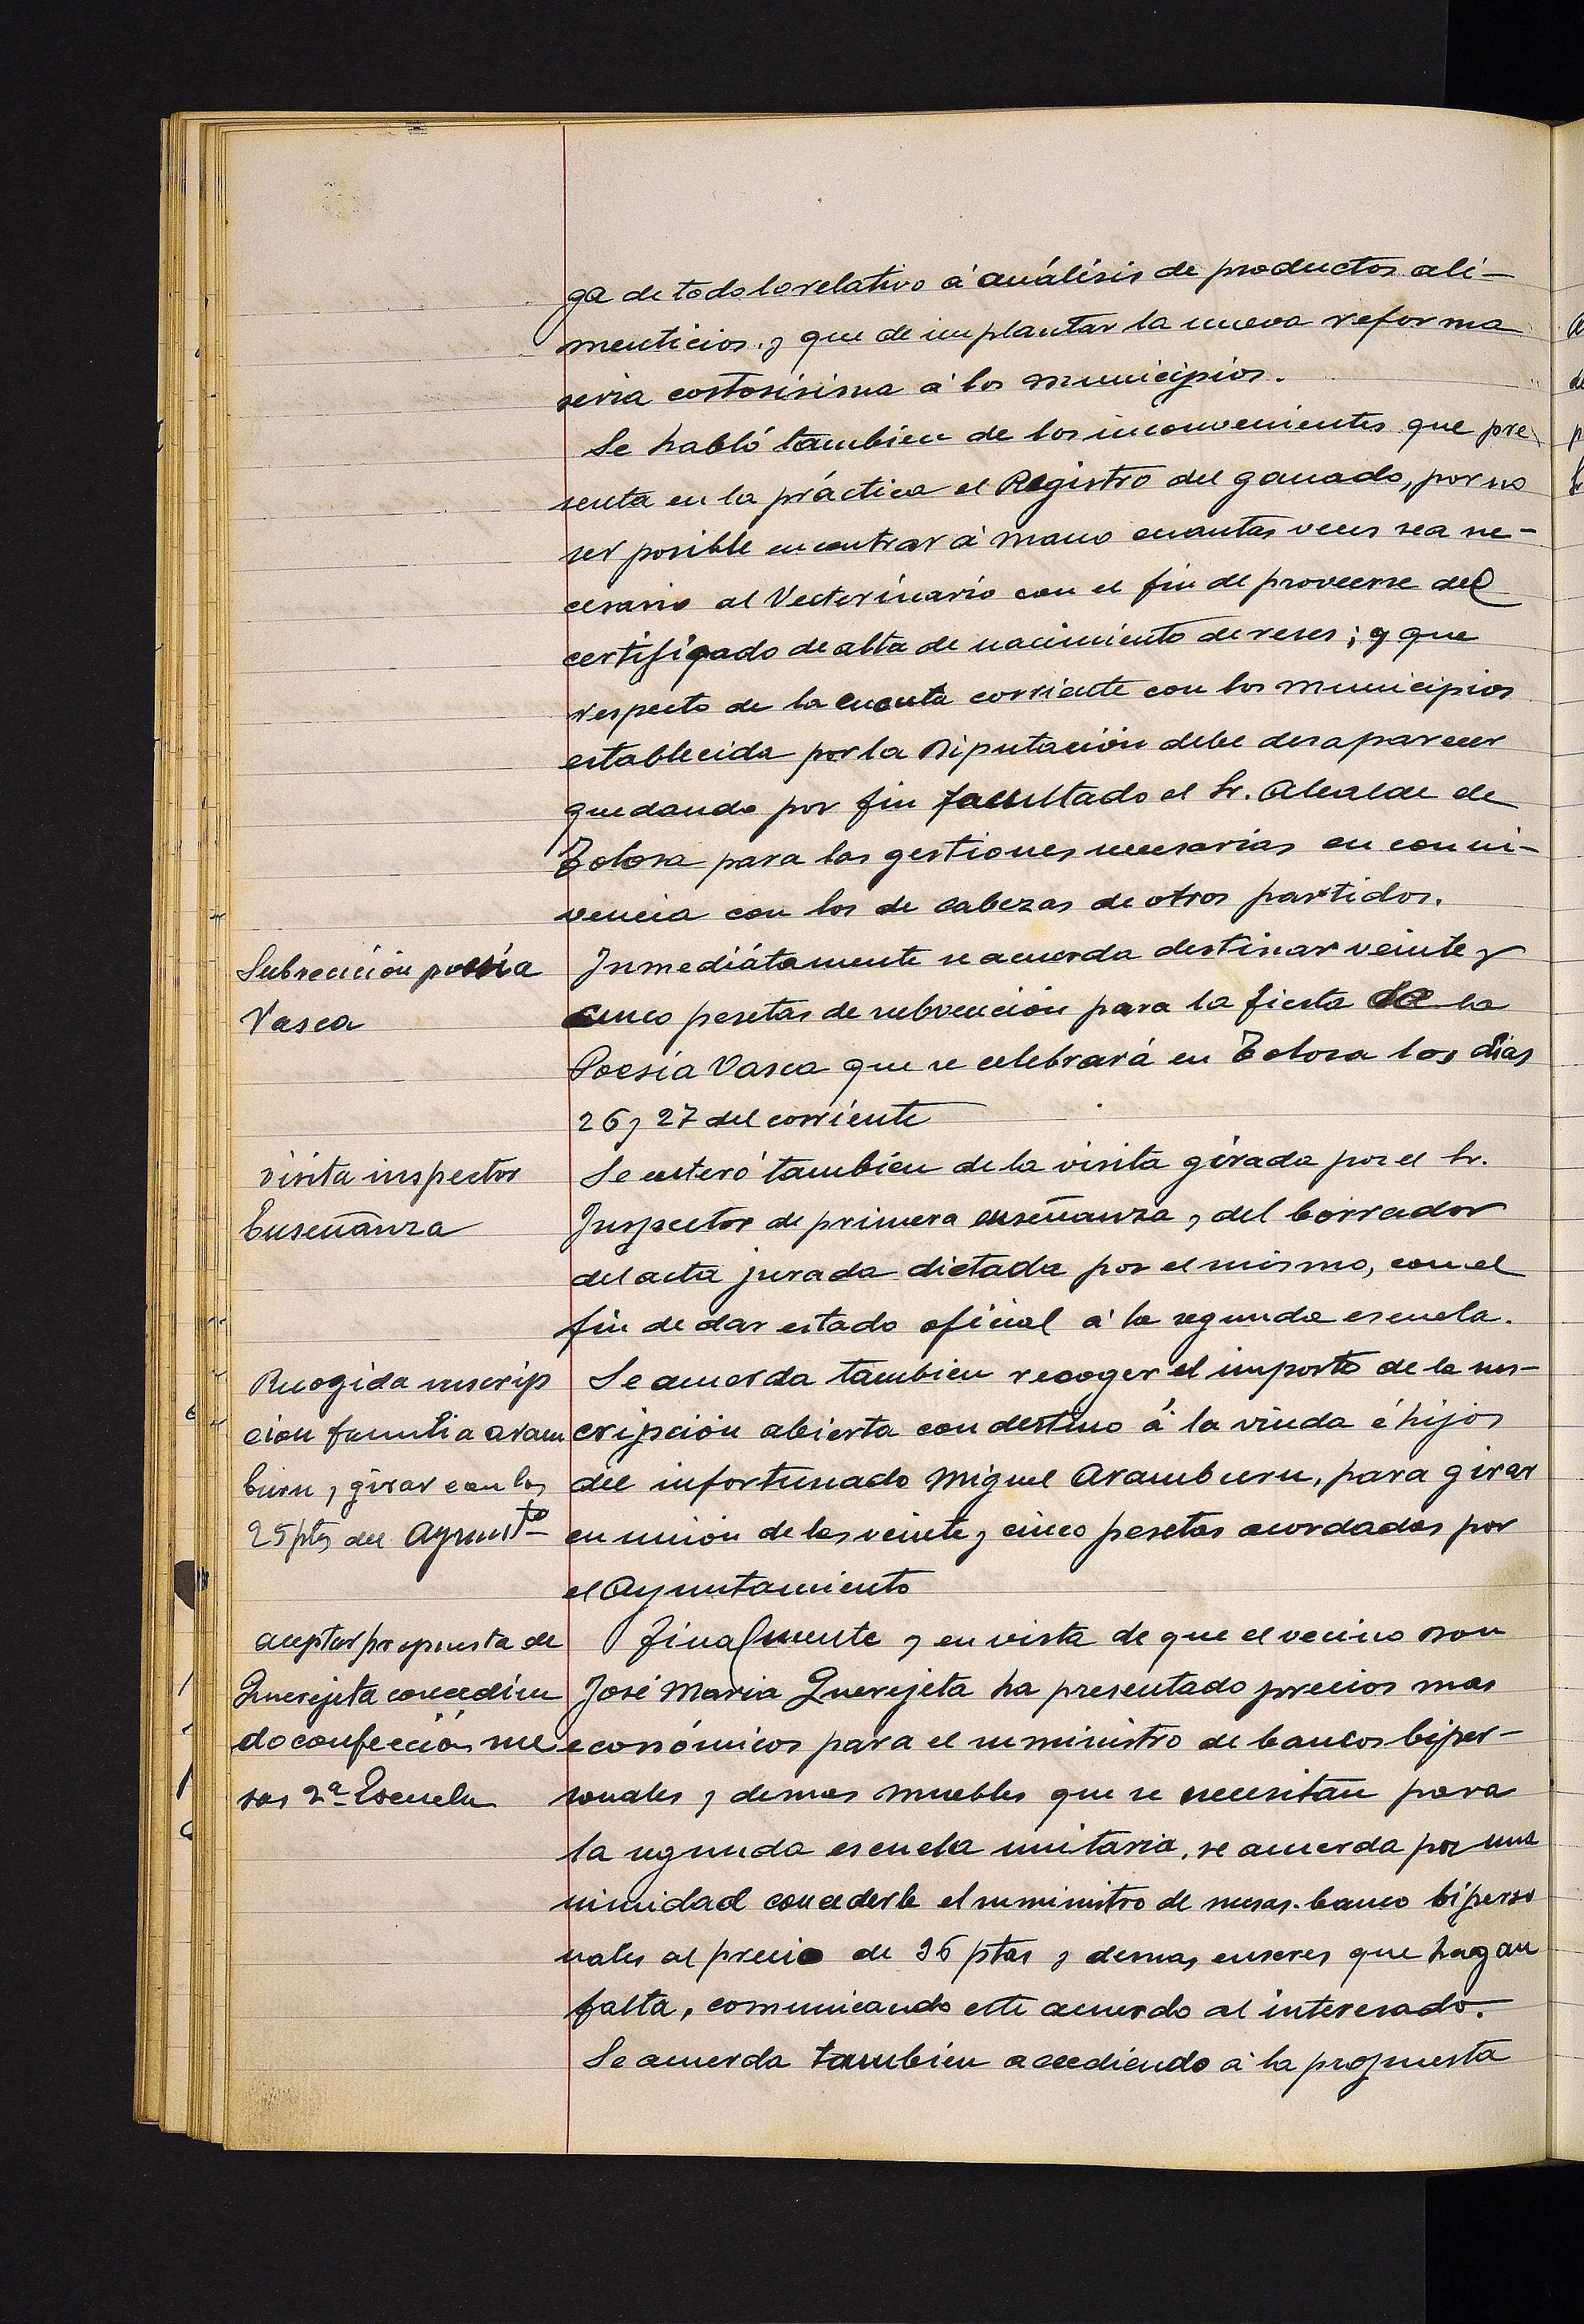 ga de todo lo relativo á análisis de productos ali-
menticios. y que de implantar la nueva reforma
seria costosisima á los municipios.
Se habló tambien de los inconvenientes que pre
senta en la práctica el Registro del ganado, por no
ser posible encontrar á mano cuantas veces sea ne-
cesario al Vecterinario con el fin de proveerse del
certificado de alta de nacimiento de reses; y que
respecto de la cuenta corriente con los municipios
establecida por la Diputación debe desaparecer
quedando por fin facultado el Sr. Alcalde de
Tolosa para las gestiones necesarias en conni-
vencia con los de cabezas de otros partidos.
Subvención poesia
Vasca
Inmediátamente se acuerda destinar veinte y
cinco pesetas de subvención para la fiesta de la
Poesía Vasca que se celebrará en Tolosa los dias
26 y 27 del corriente
Visita inspector
Enseñanza
Se enteró tambien de la visita girada por el Sr.
Inspector de primera enseñanza y del borrador
del acta jurada dictada por el mismo, con el
fin de dar estado oficial á la segunda escuela.
Recogida suscrip
cion familia aram
buru y girar con las
25 ptas del Ayunto
Se acuerda tambien recoger el importe de la sus-
cripción abierta con destino á la viuda é hijos
del infortunado Miguel Aramburu, para girar
en unión de las veinte y cinco pesetas acordadas por
el Ayuntamiento
aceptar propuesta de
Querejeta concedien
do confección me
sas 2ª Escuela
Finalmente y en vista de que el vecino Don
José Maria Querejeta ha presentado precios mas
económicos para el suministro de bancos biper-
sonales y demas muebles que se necesitan para
la segunda escuela unitaria, se acuerda por una
nimidad concederle el suministro de mesas-banco biperso
nales al precio de 36 ptas y demas enseres que hagan
falta, comunicando este acuerdo al interesado.
Se acuerda tambien accediendo á la propuesta